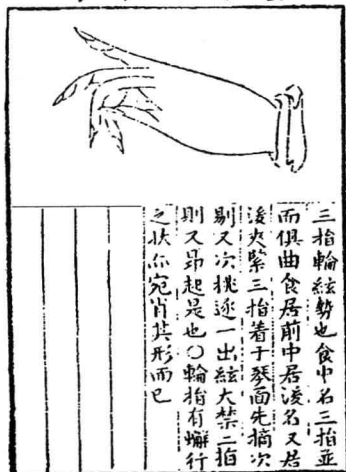 三指輪絃勢也食中名三指並
而俱曲食居前中居後名又居
後夾緊三指着于琴面先摘次
剔又次挑逐一出絃大禁二指
則又昂起是也〇輪指有蠏行
之狀仿宛肖其形而已